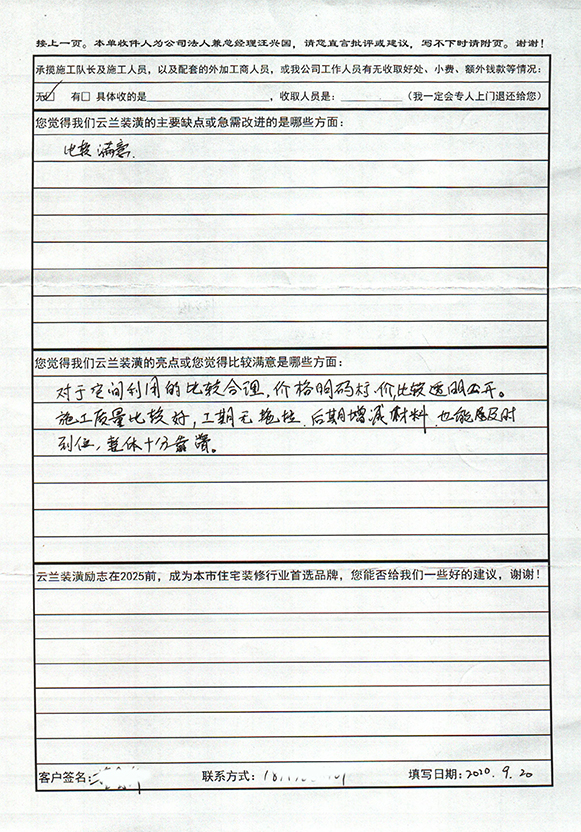 接上一页。本单收件人为公司法人兼总经理汪兴国，请您直言批评或建议，写不下时请附页。谢谢！
承揽施工队长及施工人员，以及配套的外加工商人员，或我公司工作人员有无收取好处、小费、额外钱款等情况：
无☑ 有□ 具体收的是____________________，收取人员是：__________（我一定会专人上门退还给您）
您觉得我们云兰装潢的主要缺点或急需改进的是哪些方面：
比较满意.
您觉得我们云兰装潢的亮点或您觉得比较满意是哪些方面：
对于空间利用的比较合理，价格明码标价，比较透明公开。
施工质量比较好，工期无拖拉．后期增减材料，也能及时
到位，整体十分靠谱。
云兰装潢励志在2025前，成为本市住宅装修行业首选品牌，您能否给我们一些好的建议，谢谢！
客户签名： 联系方式： 填写日期：2020.9.20